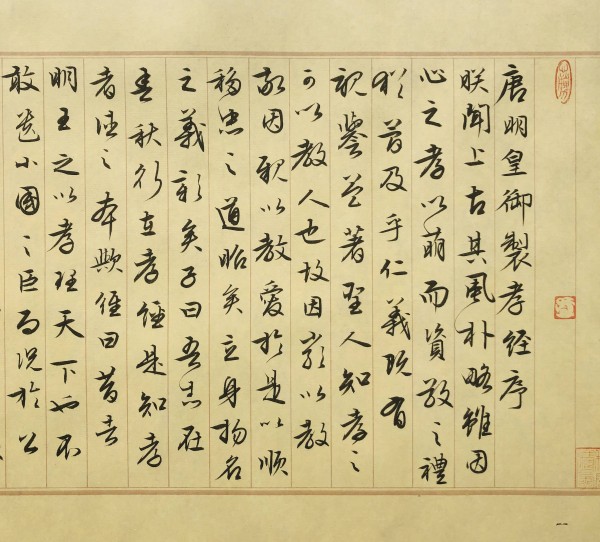 唐明皇御製孝經序
朕聞上古其風朴略雖因
心之孝以萌而資敬之禮
猶簡及乎仁義既有
親譽益著聖人知孝之
可以教人也故因嚴以教
敬因親以教愛於是以順
移忠之道昭矣立身揚名
之義彰矣子曰吾志在
春秋行在孝經是知孝
者德之本歟經曰昔者
明王之以孝理天下也不
敢遺小國之臣而況於公